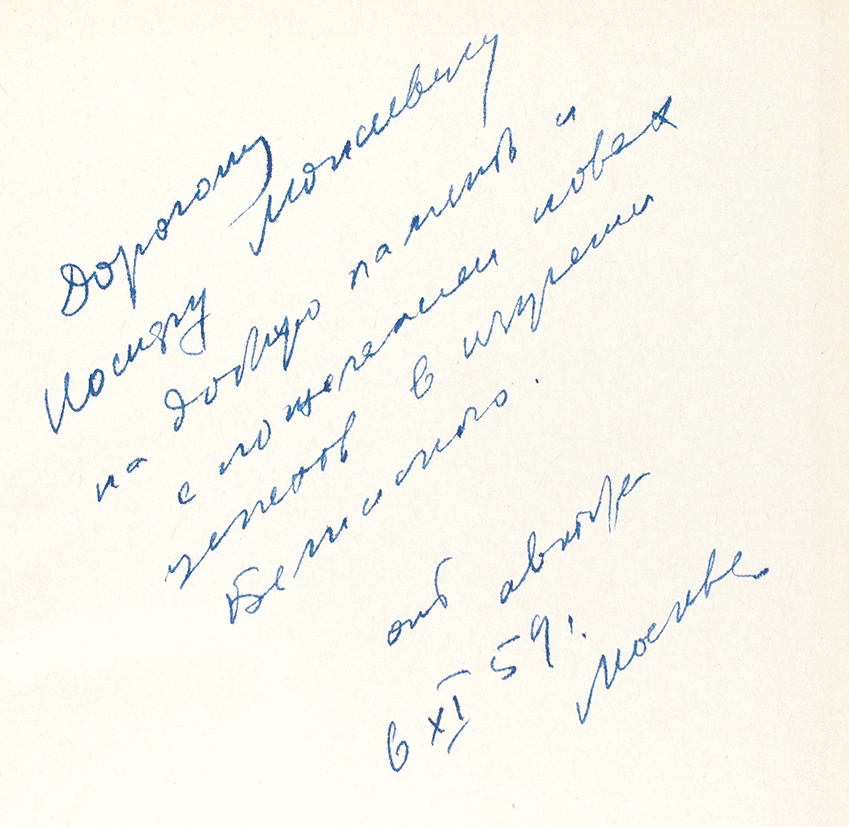 Дорогому
Иосифу Моисеевичу
на добрую память и
с пожеланием новых
успехов в изучении
Белинского.
от автора
6 XI 59 г.
Москва